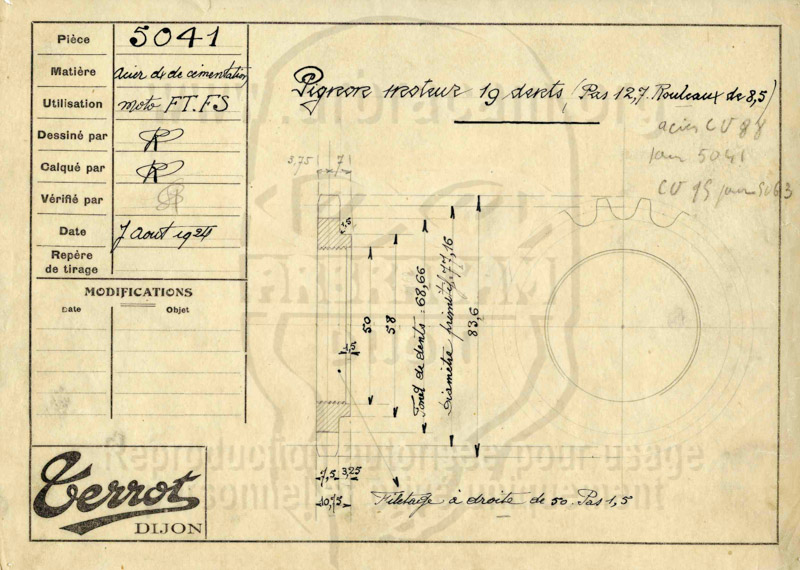 Pièce 5041
Matière acier dx de cémentation
Utilisation moto FT.FS
Dessiné par R
Calqué par R
Vérifié par
Date 7 Aout 1924
Repère
de tirage
MODIFICATIONS
Date Objet
Terrot
DIJON
Pignon moteur 19 dents (Pas 12,7. Rouleaux de 8,5)
acier CV 88
pour 5041
CV 15 pour 5063
3,75 7
1,5
50
58
Fond de dents : 68,66
Diamètre primitif 77,16
83,6
1,5
7,5 3,25
10,75
Filetage à droite de 50. Pas 1,5
Reproduction autorisée pour usage
personnel et uniquement